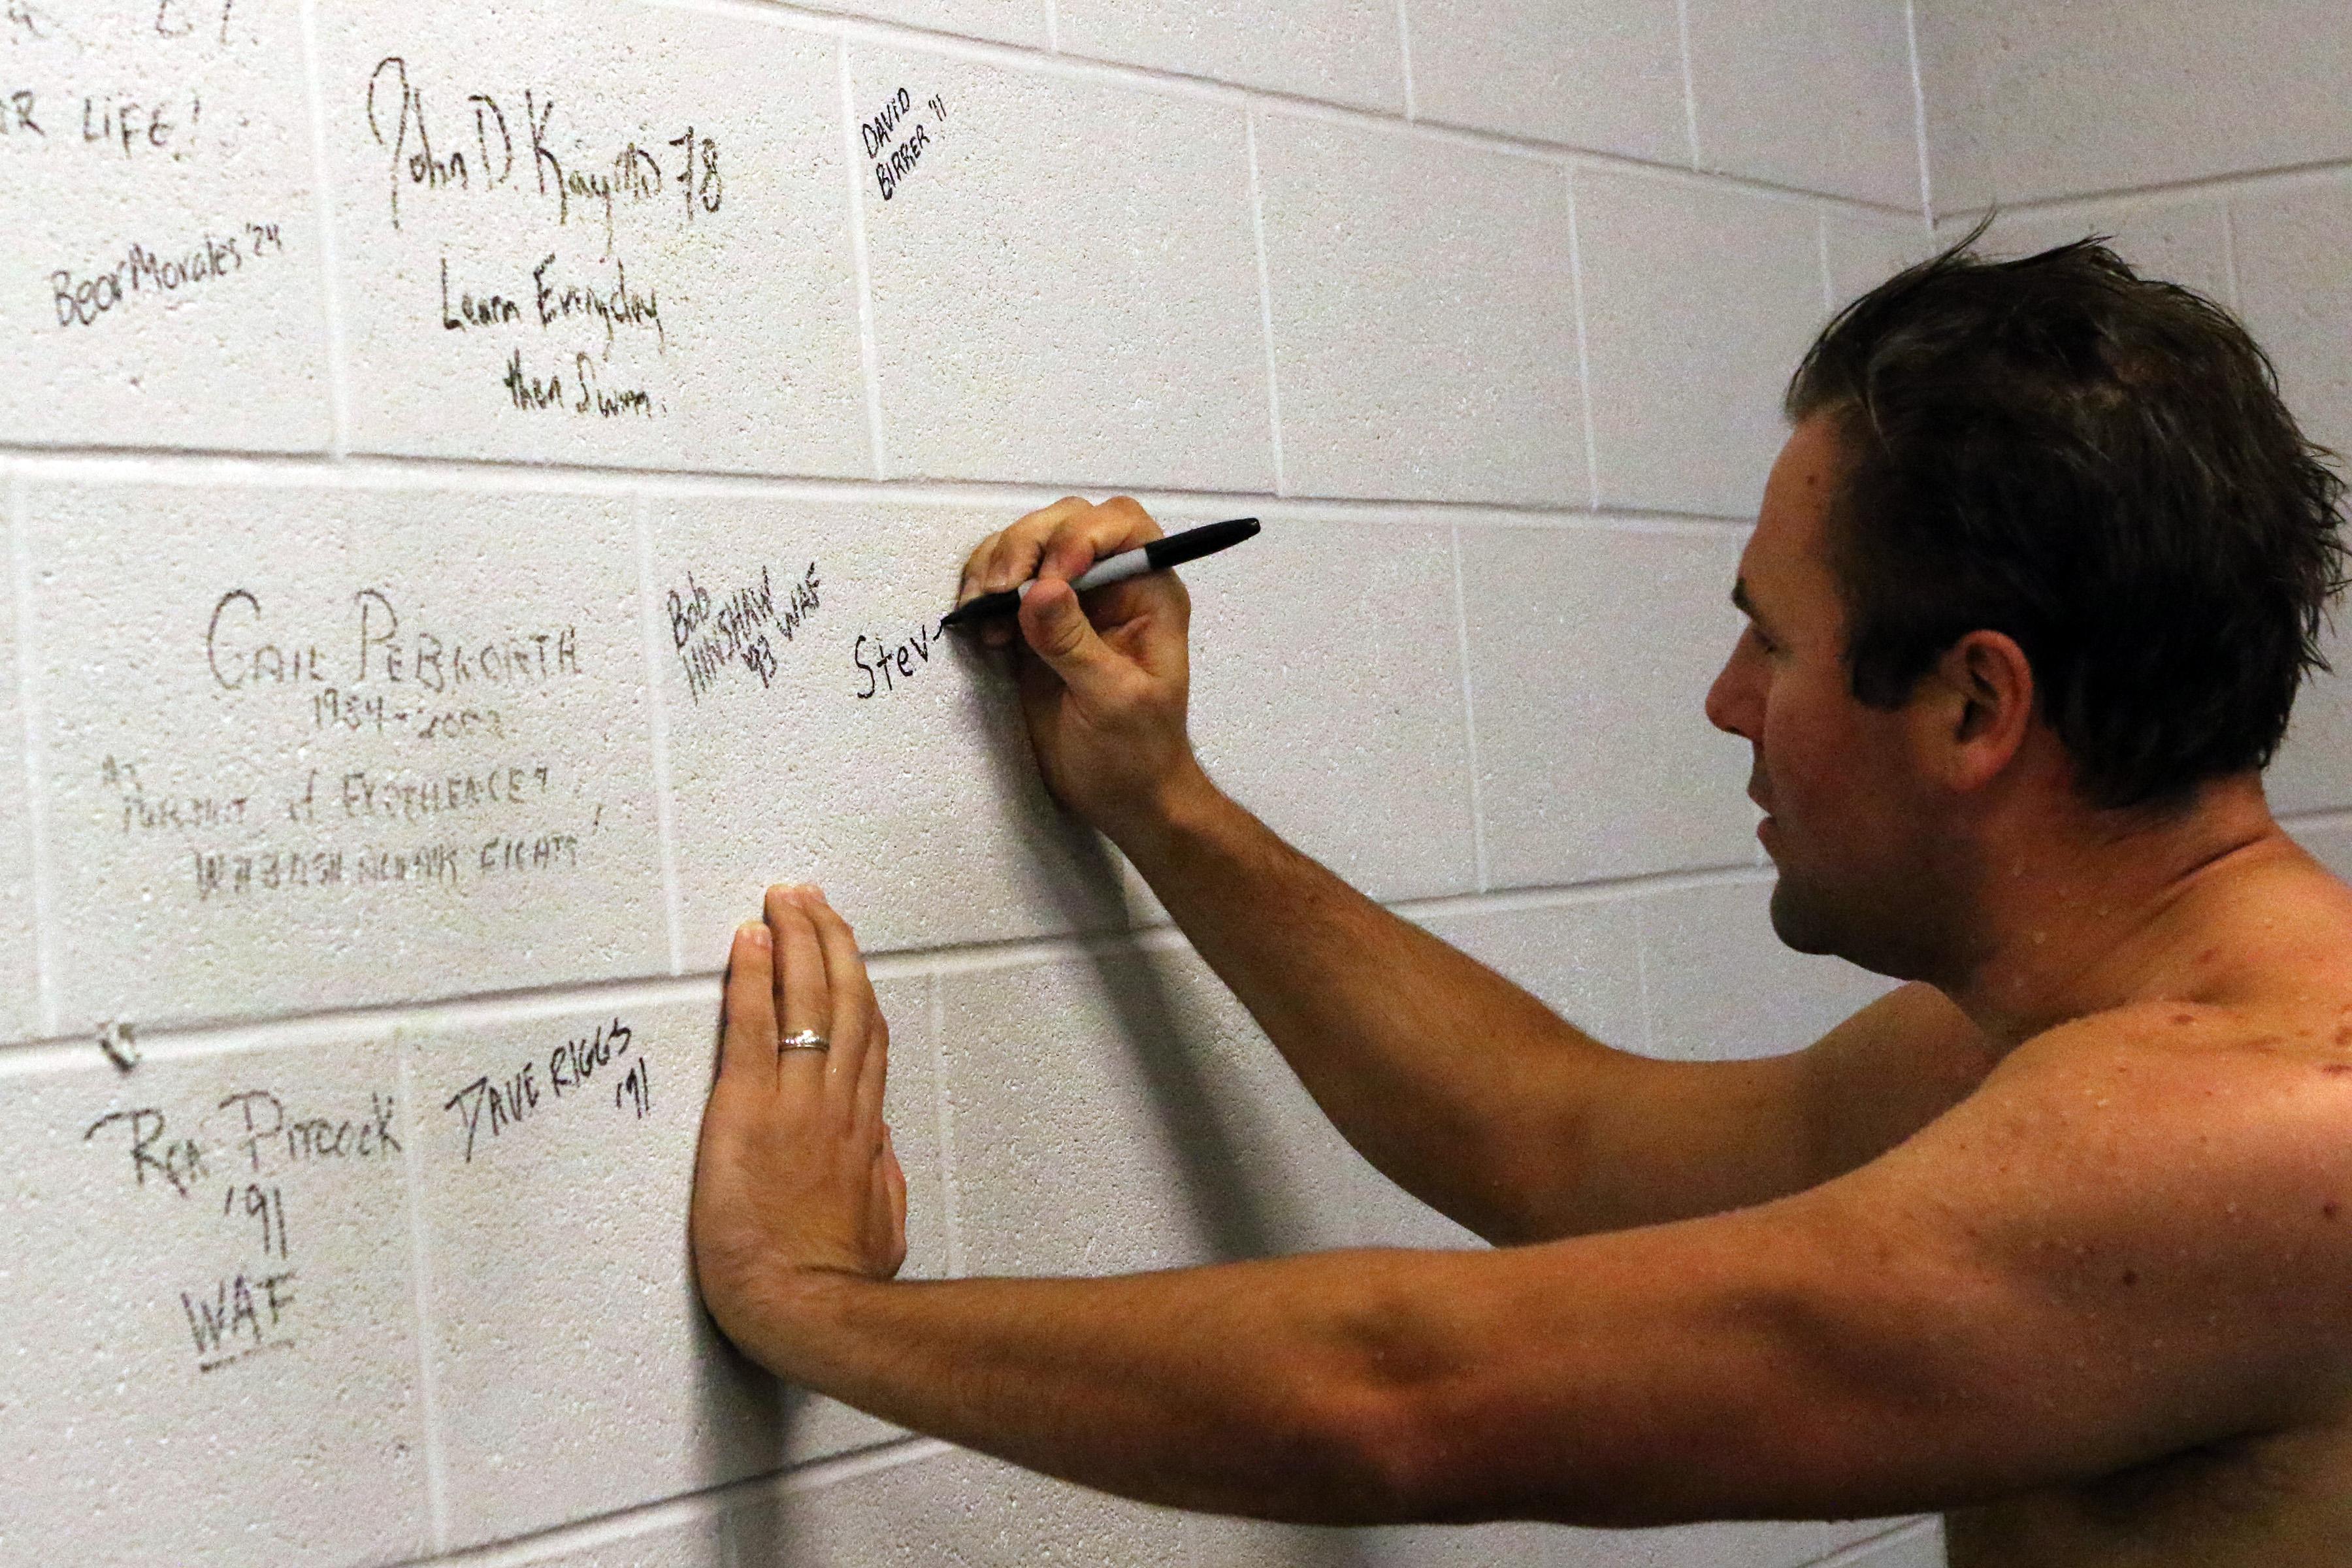 LIFE!
Bear Morales '24
John D. Kay MD 78
Learn Everyday
then Swim.
DAVID
BIRRER '11
GAIL PEBWORTH
1954-2002
PURSUIT of EXCELLENCE?
WABASH ALWAYS FIGHTS'
Bob
HINSHAW
'93 WAF
Stev
REA PITCOCK
'91
WAF
DAVE RIGGS
'91